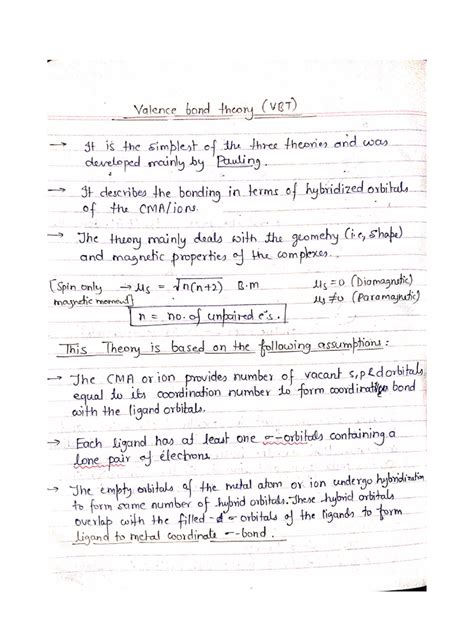 Valence bond theory (VBT)
→ It is the simplest of the three theories and was
developed mainly by Pauling.
→ It describes the bonding in terms of hybridized orbitals
of the CMA/ions.
→ The theory mainly deals with the geometry (i.e, shape)
and magnetic properties of the complexes.
[Spin only → μs = √n(n+2) B.m μs = 0 (Diamagnetic)
magnetic moment] μs ≠ 0 (Paramagnetic)
n = no. of unpaired e's.
This Theory is based on the following assumptions:
→ The CMA or ion provides number of vacant s, p & d orbitals
equal to its coordination number to form coordination bond
with the ligand orbitals.
→ Each ligand has at least one σ-orbitals containing a
lone pair of electrons.
→ The empty orbitals of the metal atom or ion undergo hybridization
to form same number of hybrid orbitals. These hybrid orbitals
overlap with the filled σ-orbitals of the ligands to form
ligand to metal coordinate σ-bond.